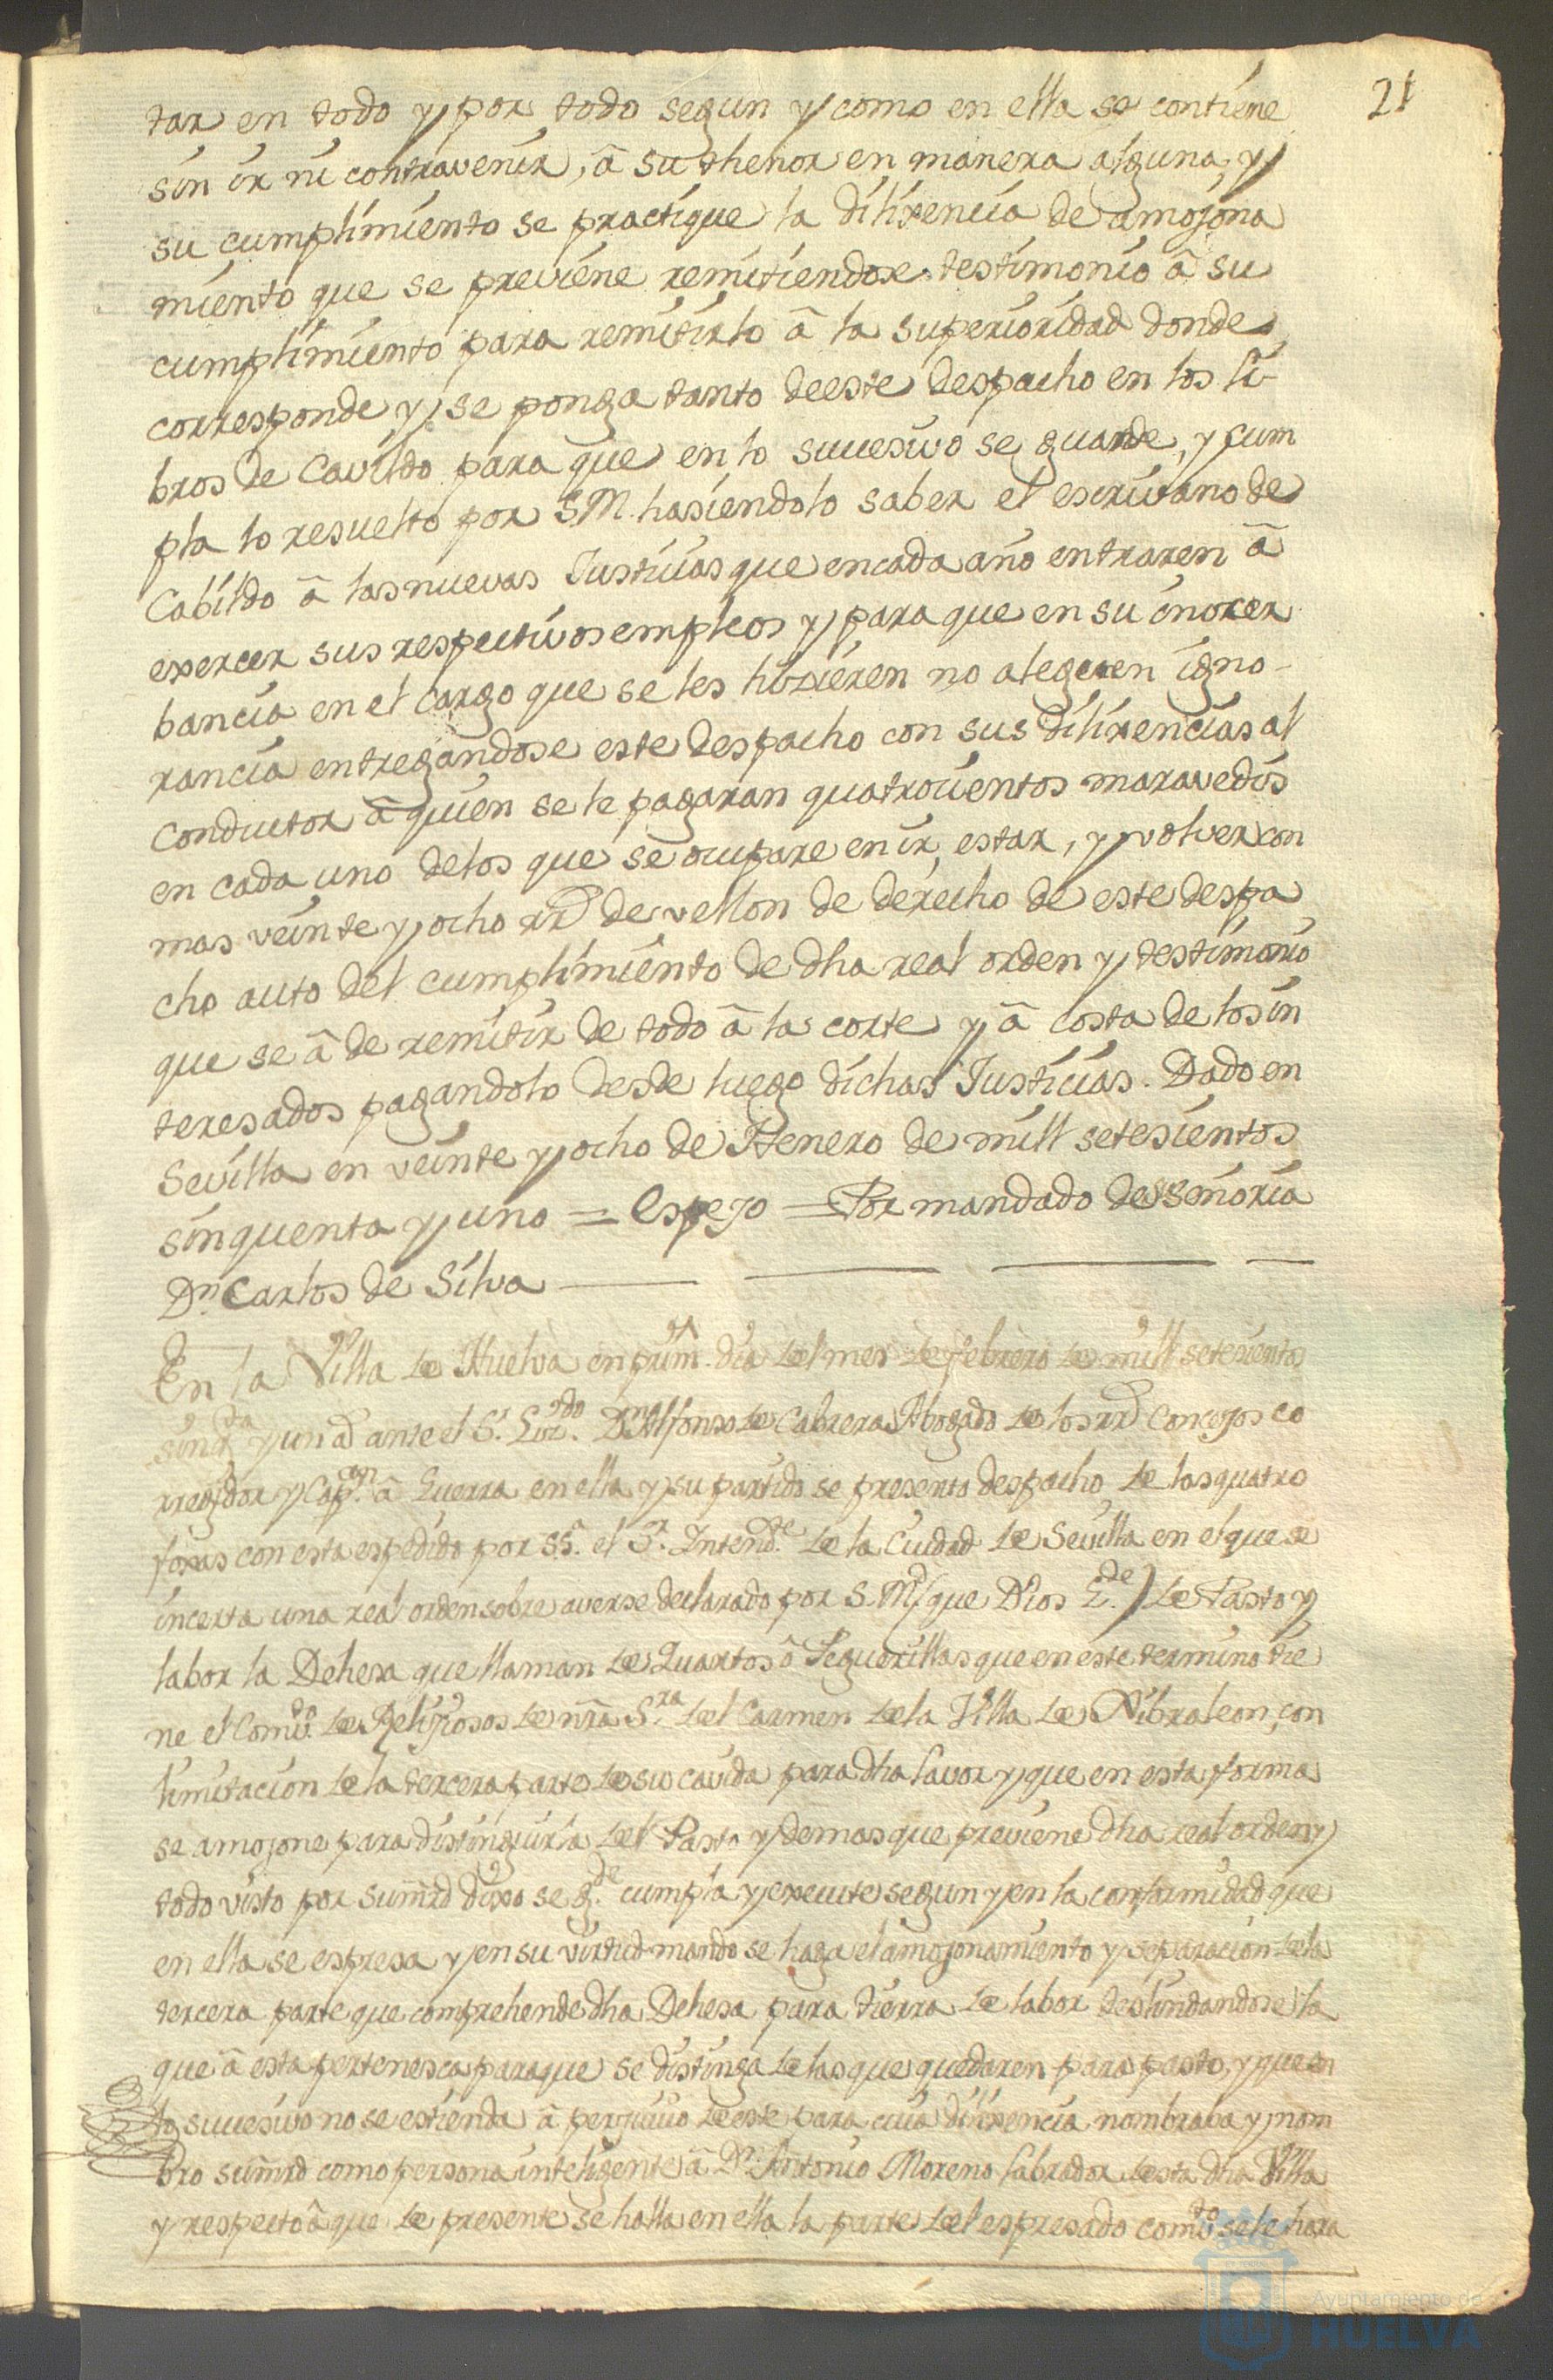 21
tar en todo y por todo segun y como en ella se contiene
sin ir ni contravenir, â su thenor en manera alguna, y
su cumplimiento se practique la dilixencia de amojona
miento que se previene remitiendose testimonio â su
cumplimiento para remitirlo â la superioridad donde
corresponde y se ponga tanto deeste despacho en los li-
bros de Cavildo para que en lo sucesivo se guarde, y cum
pla lo resuelto por S.M. hasiendolo saber el escrivano de
Cabildo â las nuevas Justicias que encada año entraren â
exercer sus respectivos empleos y para que en su inorer
bancia en el cargo que se les hizieren no aleguen igno-
rancia entregandose este despacho con sus dilixencias al
conductor â quien se le pagaran quatrocientos maravedis
en cada uno delos que se ocupare en ir, estar, y volver con
mas veinte y ocho rrs de vellon de derecho de este despa
cho auto del cumplimiento de dha real orden y testimonio
que se â de remitir de todo â la corte y â costa de los in
teresados pagandolo desde luego dichas Justicias. Dado en
Sevilla en veinte y ocho de Henero de mill setesientos
sinquenta y uno = Espejo = Por mandado de su Señoria
Dn. Carlos de Silva
En la Villa de Huelva en prim.º dia del mes de febrero de mill setesientos
sinqta y un as ante el Sr. Lizdo. Dn Alfonso de Cabrera Abogado de los rrs Concejos co
rregidor y Capan. â Guerra en ella y su partido se presento despacho de las quatro
foxas con esta espedido por S.Sa. el Sr. Intende. de la Ciudad de Sevilla en el que se
incerta una real orden sobre averse declarado por S.M. (que Dios Gde.) de Pasto y
labor la Dehesa que llaman de Quartos ô Seguerillas que en este termino tie
ne el Comvto. de Relijiosos de nra Sra. del Carmen de la Villa de Xibraleon, con
limitacion de la tercera parte de su cavida para dha lavor y que en esta forma
se amojone para distinguirla del Pasto y demas que previene dha real orden y
todo visto por su mrd dixo se gde. cumpla y execute segun y en la conformidad que
en ella se espresa y en su virtud mando se haga el amojonamiento y separacion de la
tercera parte que comprehende dha Dehesa para tierra de labor deslindandose la
que â esta pertenesca para que se distinga de las que quedaren para pasto, y que en
lo sucesivo no se estienda â perjuicio de este para cuia dilixencia nombraba y nom
bro su mrd como persona inteligente â Dn. Antonio Moreno labrador desta dha Villa
y respecto â que de presente se halla en ella la parte del espresado comvto se le hara
Ayuntamiento de
HUELVA